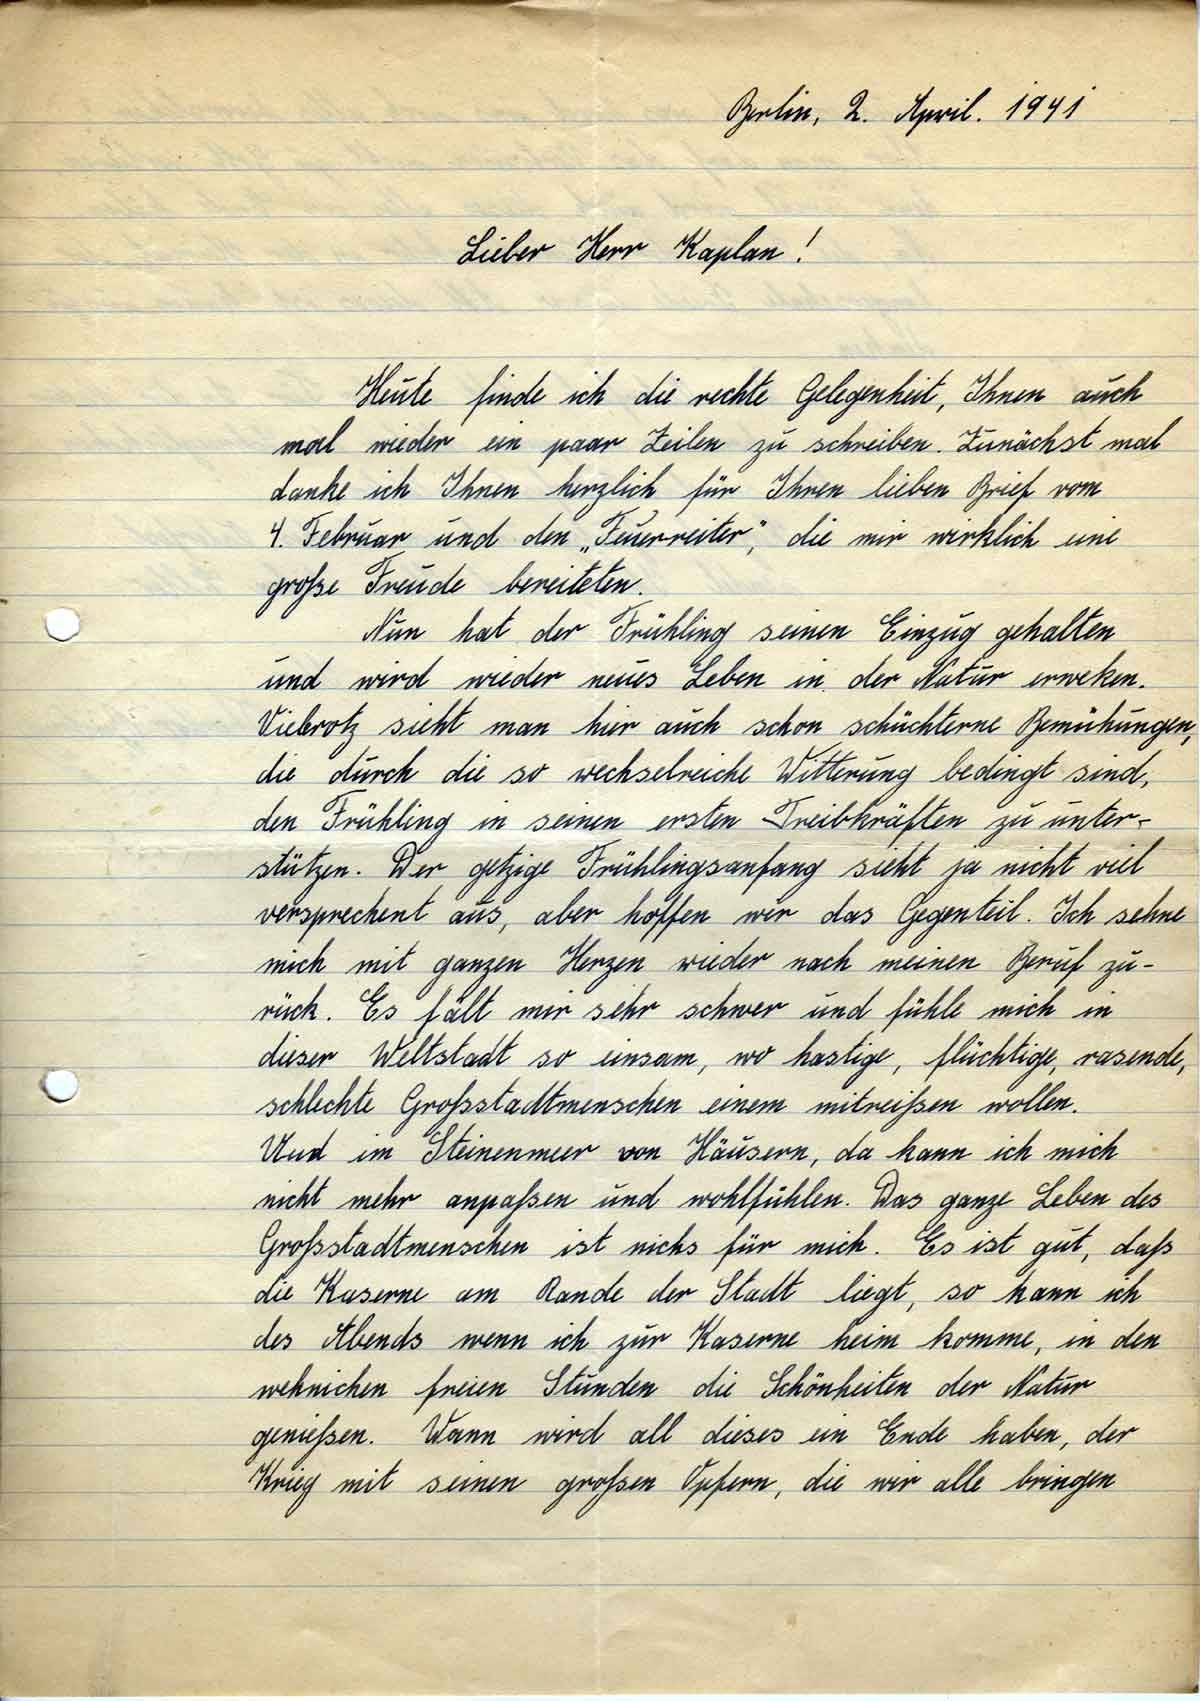 Berlin, 2. April. 1941
Lieber Herr Kaplan!
Heute finde ich die rechte Gelegenheit, Ihnen auch
mal wieder ein paar Zeilen zu schreiben. Zunächst mal
danke ich Ihnen herzlich für Ihren lieben Brief vom
4. Februar und den „Feuerreiter“, die mir wirklich eine
große Freude bereiteten.
Nun hat der Frühling seinen Einzug gehalten
und wird wieder neues Leben in der Natur erweken.
Vielrotz sieht man hier auch schon schüchterne Bemühungen,
die durch die so wechselreiche Witterung bedingt sind,
den Frühling in seinen ersten Treibkräften zu unter-
stützen. Der getzige Frühlingsanfang sieht ja nicht viel
versprechent aus, aber hoffen wir das Gegenteil. Ich sehne
mich mit ganzen Herzen wieder nach meinen Beruf zu-
rück. Es fält mir sehr schwer und fühle mich in
dieser Weltstadt so einsam, wo hastige, flüchtige, rasende,
schlechte Großstadtmenschen einem mitreißen wollen.
Und im Steinenmeer von Häusern, da kann ich mich
nicht mehr anpaßen und wohlfühlen. Das ganze Leben des
Großstadtmenschen ist nichs für mich. Es ist gut, daß
die Kaserne am Rande der Stadt liegt, so kann ich
des Abends wenn ich zur Kaserne heim komme, in den
wehnichen freien Stunden die Schönheiten der Natur
genießen. Wann wird all dieses ein Ende haben, der
Krieg mit seinen großen Opfern, die wir alle bringen